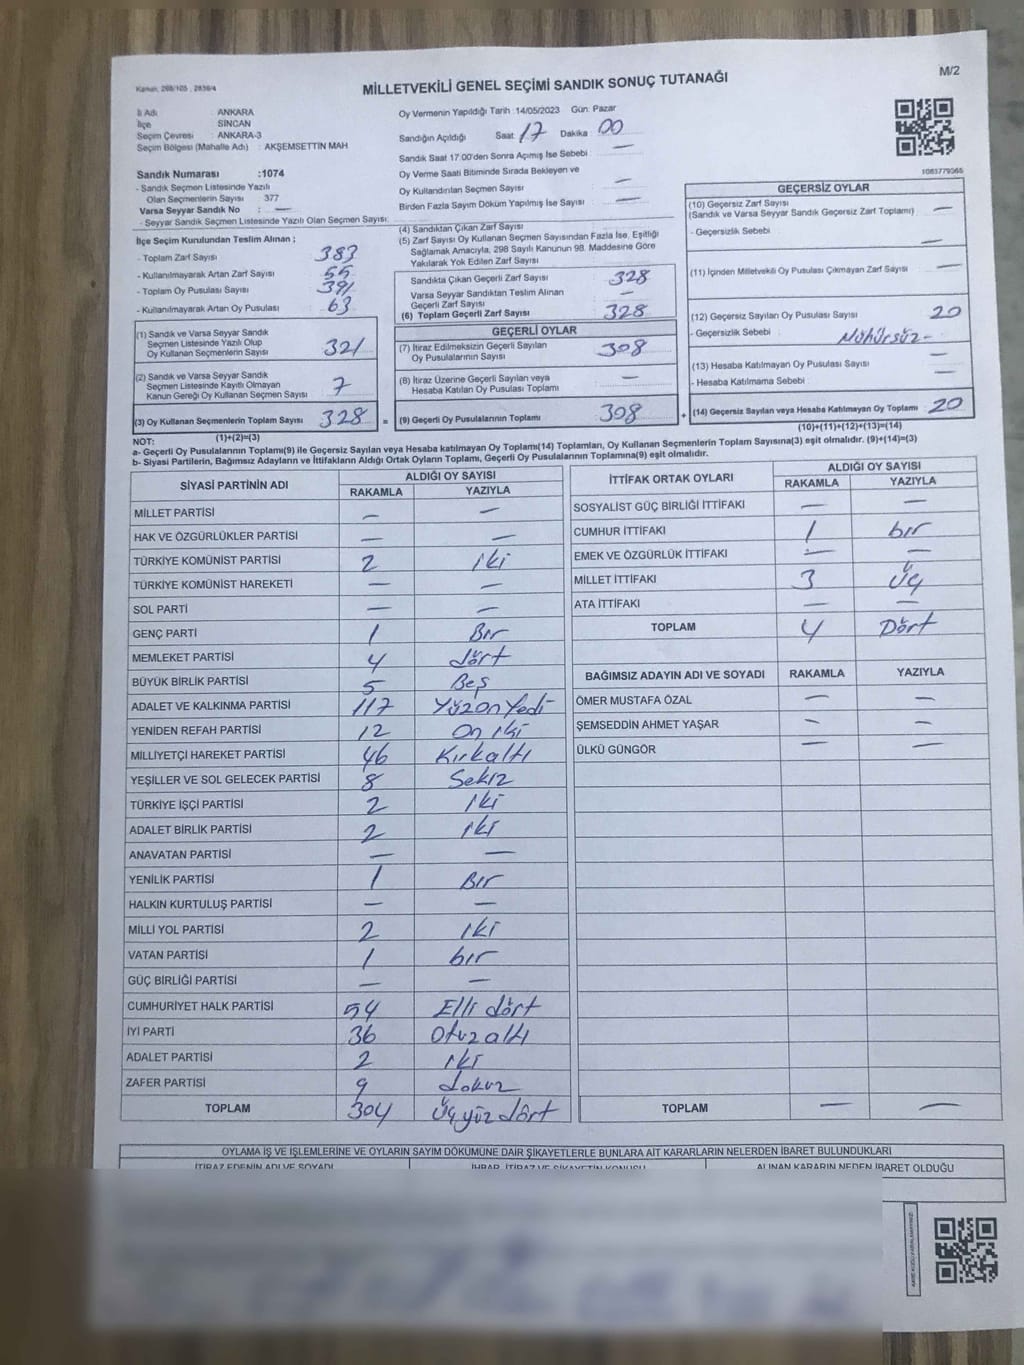 Kanun, 298/105 , 2839/4
MİLLETVEKİLİ GENEL SEÇİMİ SANDIK SONUÇ TUTANAĞI
M/2
İli Adı : ANKARA
İlçe : SİNCAN
Seçim Çevresi : ANKARA-3
Seçim Bölgesi (Mahalle Adı) : AKŞEMSETTİN MAH
Sandık Numarası :1074
- Sandık Seçmen Listesinde Yazılı
Olan Seçmenlerin Sayısı 377
Varsa Seyyar Sandık No : —
- Seyyar Sandık Seçmen Listesinde Yazılı Olan Seçmen Sayısı:
Oy Vermenin Yapıldığı Tarih :14/05/2023 Gün: Pazar
Sandığın Açıldığı Saat: 17 Dakika: 00
Sandık Saat 17:00'den Sonra Açımış İse Sebebi : —
Oy Verme Saati Bitiminde Sırada Bekleyen ve
Oy Kullandırılan Seçmen Sayısı : —
Birden Fazla Sayım Döküm Yapılmış İse Sayısı : —
1083779365
İlçe Seçim Kurulundan Teslim Alınan ;
- Toplam Zarf Sayısı : 383
- Kullanılmayarak Artan Zarf Sayısı : 55
- Toplam Oy Pusulası Sayısı : 391
- Kullanılmayarak Artan Oy Pusulası : 63
(1) Sandık ve Varsa Seyyar Sandık
Seçmen Listesinde Yazılı Olup
Oy Kullanan Seçmenlerin Sayısı 321
(2) Sandık ve Varsa Seyyar Sandık
Seçmen Listesinde Kayıtlı Olmayan
Kanun Gereği Oy Kullanan Seçmen Sayısı 7
(3) Oy Kullanan Seçmenlerin Toplam Sayısı 328 =
(1)+(2)=(3)
(4) Sandıktan Çıkan Zarf Sayısı :
(5) Zarf Sayısı Oy Kullanan Seçmen Sayısından Fazla İse, Eşitliği
Sağlamak Amacıyla, 298 Sayılı Kanunun 98. Maddesine Göre
Yakılarak Yok Edilen Zarf Sayısı :
Sandıkta Çıkan Geçerli Zarf Sayısı 328
Varsa Seyyar Sandıktan Teslim Alınan
Geçerli Zarf Sayısı —
(6) Toplam Geçerli Zarf Sayısı 328
GEÇERLİ OYLAR
(7) İtiraz Edilmeksizin Geçerli Sayılan
Oy Pusulalarının Sayısı 308
(8) İtiraz Üzerine Geçerli Sayılan veya
Hesaba Katılan Oy Pusulası Toplamı —
(9) Geçerli Oy Pusulalarının Toplamı 308 +
GEÇERSİZ OYLAR
(10) Geçersiz Zarf Sayısı
(Sandık ve Varsa Seyyar Sandık Geçersiz Zarf Toplamı) —
- Geçersizlik Sebebi : —
(11) İçinden Milletvekili Oy Pusulası Çıkmayan Zarf Sayısı —
(12) Geçersiz Sayılan Oy Pusulası Sayısı 20
- Geçersizlik Sebebi : Mühürsüz-
(13) Hesaba Katılmayan Oy Pusulası Sayısı —
- Hesaba Katılmama Sebebi : —
(14) Geçersiz Sayılan veya Hesaba Katılmayan Oy Toplamı 20
(10)+(11)+(12)+(13)=(14)
NOT:
a- Geçerli Oy Pusulalarının Toplamı(9) ile Geçersiz Sayılan veya Hesaba katılmayan Oy Toplamı(14) Toplamları, Oy Kullanan Seçmenlerin Toplam Sayısına(3) eşit olmalıdır. (9)+(14)=(3)
b- Siyasi Partilerin, Bağımsız Adayların ve İttifakların Aldığı Ortak Oyların Toplamı, Geçerli Oy Pusulalarının Toplamına(9) eşit olmalıdır.
SİYASİ PARTİNİN ADI ALDIĞI OY SAYISI
RAKAMLA YAZIYLA
MİLLET PARTİSİ — —
HAK VE ÖZGÜRLÜKLER PARTİSİ — —
TÜRKİYE KOMÜNİST PARTİSİ 2 iki
TÜRKİYE KOMÜNİST HAREKETİ — —
SOL PARTİ — —
GENÇ PARTİ 1 Bır
MEMLEKET PARTİSİ 4 dört
BÜYÜK BİRLİK PARTİSİ 5 Beş
ADALET VE KALKINMA PARTİSİ 117 Yüzon Yedi
YENİDEN REFAH PARTİSİ 12 on iki
MİLLİYETÇİ HAREKET PARTİSİ 46 Kırkaltı
YEŞİLLER VE SOL GELECEK PARTİSİ 8 Sekiz
TÜRKİYE İŞÇİ PARTİSİ 2 iki
ADALET BİRLİK PARTİSİ 2 iki
ANAVATAN PARTİSİ — —
YENİLİK PARTİSİ 1 Bır
HALKIN KURTULUŞ PARTİSİ — —
MİLLİ YOL PARTİSİ 2 iki
VATAN PARTİSİ 1 bır
GÜÇ BİRLİĞİ PARTİSİ — —
CUMHURİYET HALK PARTİSİ 54 Elli dört
İYİ PARTİ 36 Otuz altı
ADALET PARTİSİ 2 iki
ZAFER PARTİSİ 9 dokuz
TOPLAM 304 Üç yüz dört
İTTİFAK ORTAK OYLARI ALDIĞI OY SAYISI
RAKAMLA YAZIYLA
SOSYALİST GÜÇ BİRLİĞİ İTTİFAKI — —
CUMHUR İTTİFAKI 1 bır
EMEK VE ÖZGÜRLÜK İTTİFAKI — —
MİLLET İTTİFAKI 3 Üç
ATA İTTİFAKI — —
TOPLAM 4 Dört
BAĞIMSIZ ADAYIN ADI VE SOYADI RAKAMLA YAZIYLA
ÖMER MUSTAFA ÖZAL — —
ŞEMSEDDİN AHMET YAŞAR — —
ÜLKÜ GÜNGÖR — —
TOPLAM — —
OYLAMA İŞ VE İŞLEMLERİNE VE OYLARIN SAYIM DÖKÜMÜNE DAİR ŞİKAYETLERLE BUNLARA AİT KARARLARIN NELERDEN İBARET BULUNDUKLARI
İTİRAZ EDENİN ADI VE SOYADI İHBAR, İTİRAZ VE ŞİKAYETİN KONUSU ALINAN KARARIN NEDEN İBARET OLDUĞU